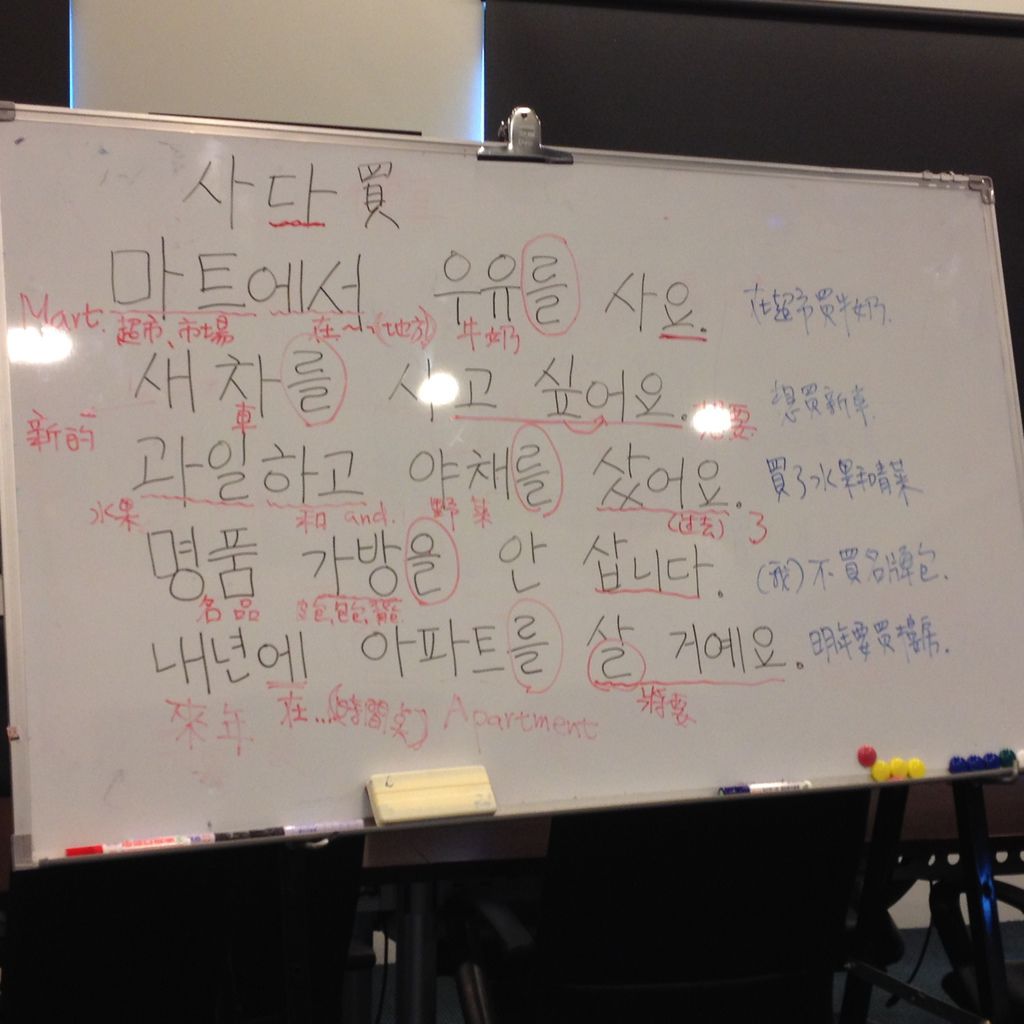 사다 買
마트에서 우유를 사요. 在超市買牛奶.
Mart. 超市、市場 在~(地方) 牛奶
새 차를 사고 싶어요. 想買新車.
新的 車 想要
과일하고 야채를 샀어요. 買了水果和青菜
水果 和 and. 野菜 (过去) 了
명품 가방을 안 삽니다. (我)不買名牌包.
名品 包包
내년에 아파트를 살 거예요. 明年要買樓房.
來年 在...(時間点) Apartment 將要